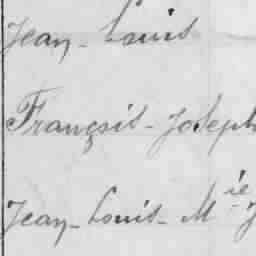 Jean-Louis
Françsit-Joseph
Jean-Louis-Mie J